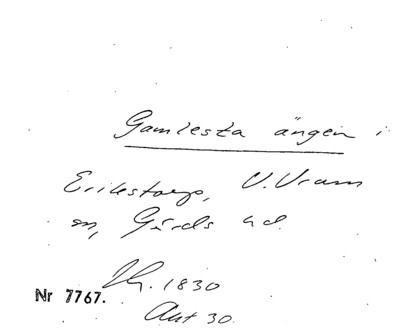 Gamlesta ängen i
Erikstorp, V. Vram
sn, Gärds hd.
1830
Akt 30.
Nr 7767.